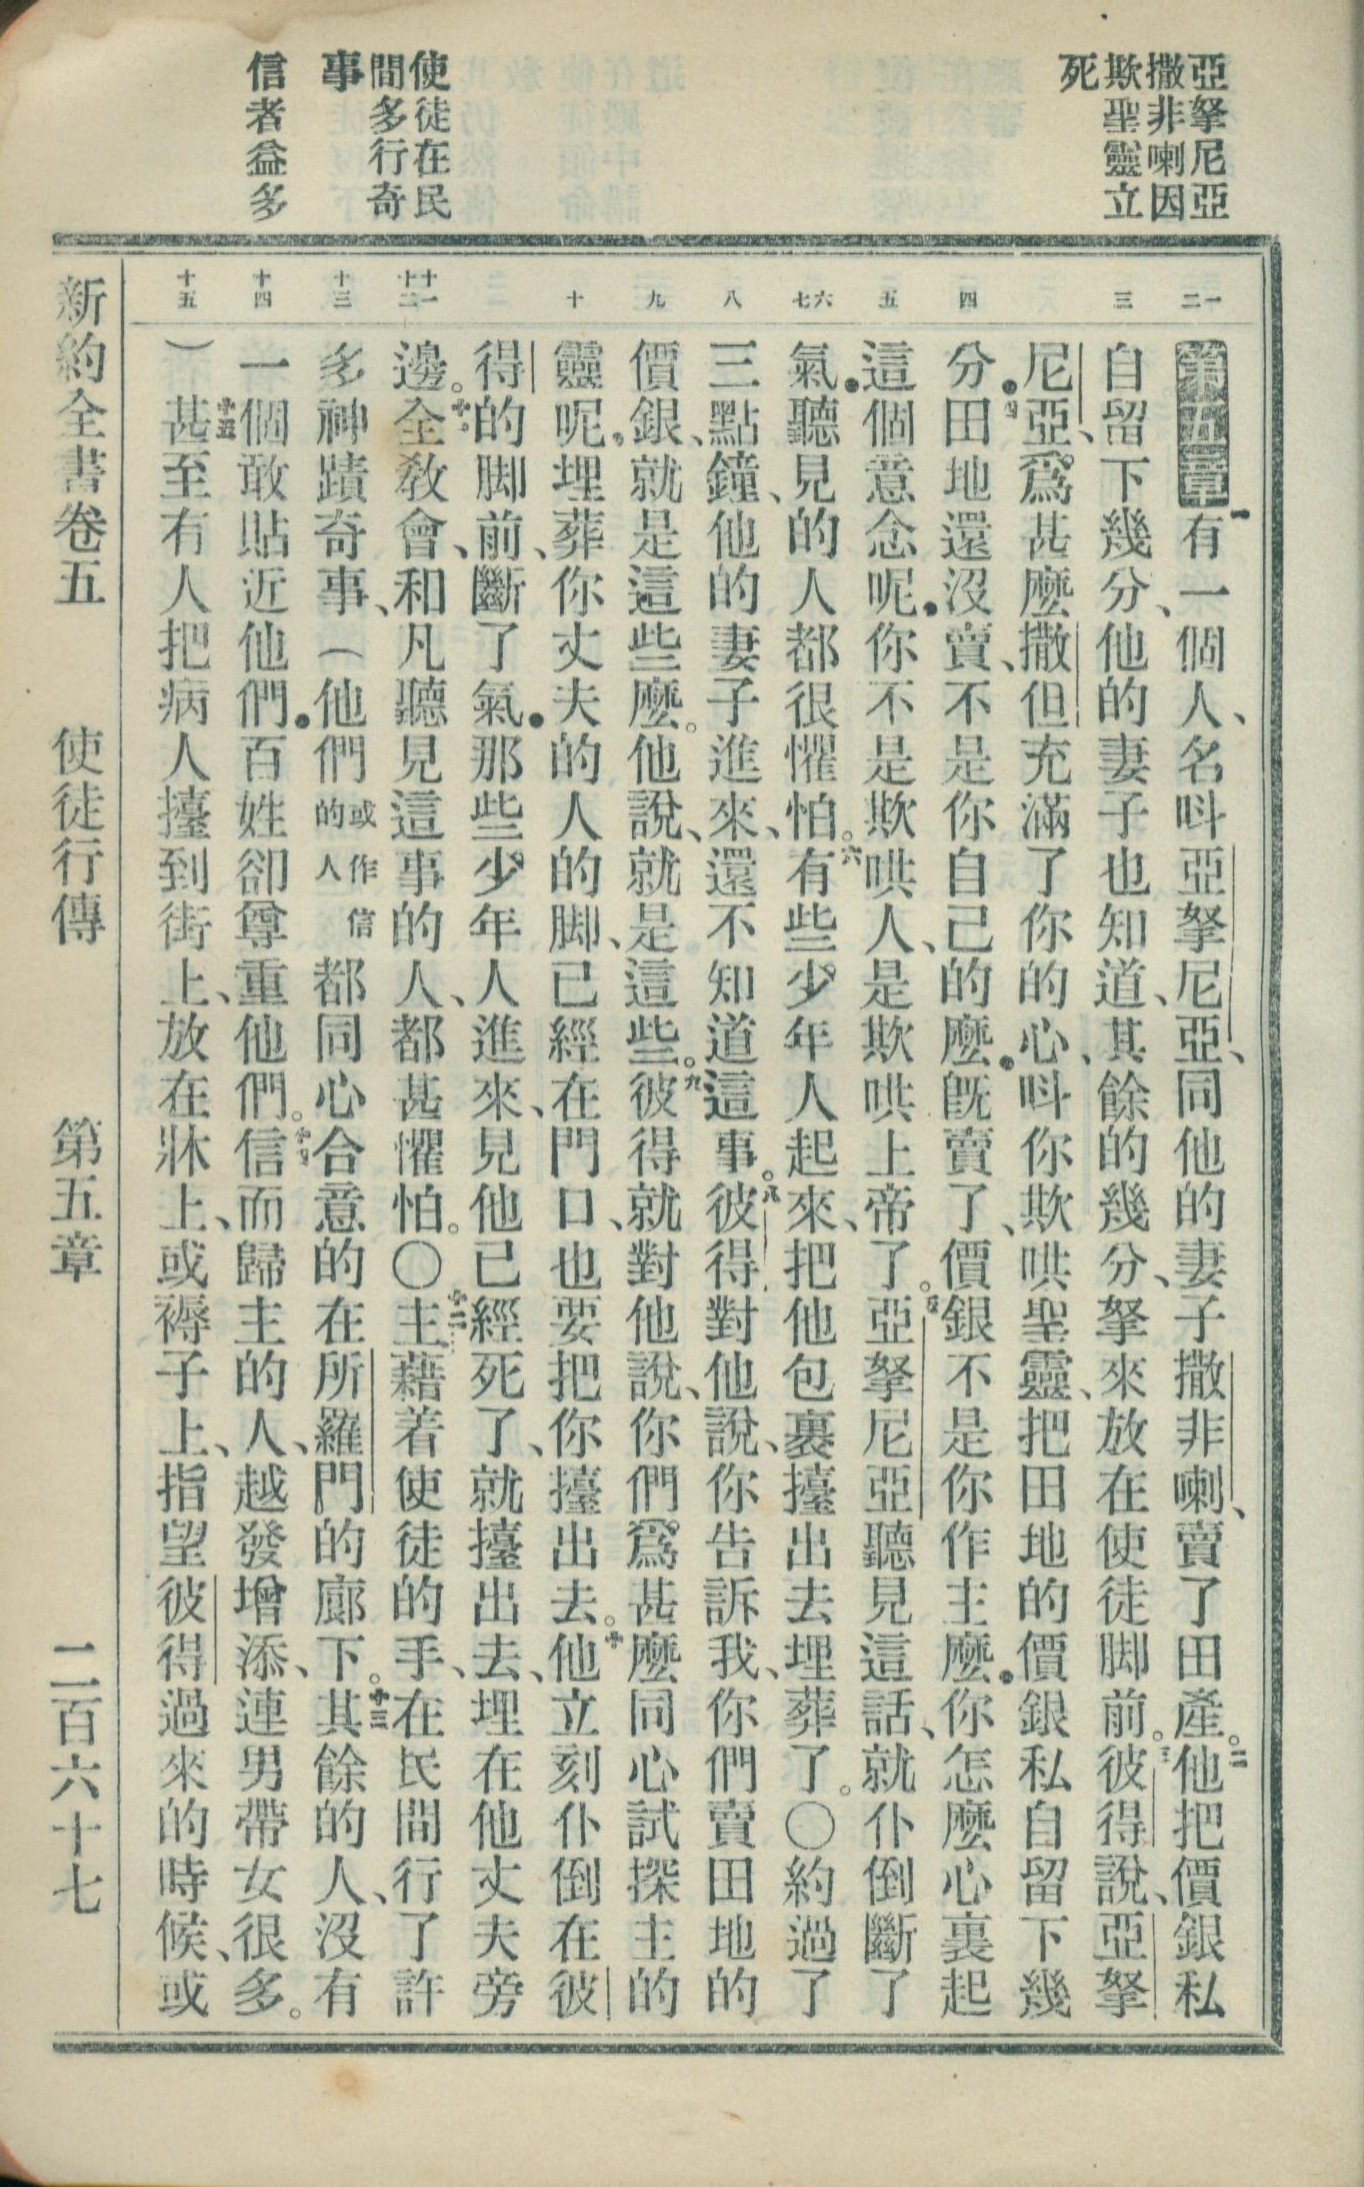 亞拏尼亞
撒非喇因
欺聖靈立
死
使徒在民
間多行奇
事
信者益多
一 二 三 四 五 六 七 八 九 十 十一 十二 十三 十四 十五
第五章一有一個人、名呌亞拏尼亞、同他的妻子撒非喇、賣了田產。二他把價銀私
自留下幾分、他的妻子也知道、其餘的幾分、拏來放在使徒脚前。三彼得說、亞拏
尼亞、爲甚麼撒但充滿了你的心、呌你欺哄聖靈、把田地的價銀私自留下幾
分.四田地還沒賣、不是你自己的麼.旣賣了、價銀不是你作主麼.你怎麼心裏起
這個意念呢.你不是欺哄人、是欺哄上帝了。五亞拏尼亞聽見這話、就仆倒斷了
氣.聽見的人都很懼怕。六有些少年人起來、把他包裹擡出去埋葬了。〇約過了
三點鐘、他的妻子進來、還不知道這事。八彼得對他說、你告訴我、你們賣田地的
價銀、就是這些麼。他說、就是這些。九彼得就對他說、你們爲甚麼同心試探主的
靈呢.埋葬你丈夫的人的脚、已經在門口、也要把你擡出去。十他立刻仆倒在彼
得的脚前、斷了氣.那些少年人進來、見他已經死了、就擡出去、埋在他丈夫旁
邊。十一全敎會、和凡聽見這事的人、都甚懼怕。〇十二主藉着使徒的手、在民間行了許
多神蹟奇事、（他們或作信的人都同心合意的在所羅門的廊下。十三其餘的人、沒有
一個敢貼近他們.百姓卻尊重他們。十四信而歸主的人、越發增添、連男帶女很多。
）十五甚至有人把病人擡到街上、放在牀上、或褥子上、指望彼得過來的時候、或
新約全書卷五 使徒行傳 第五章 二百六十七